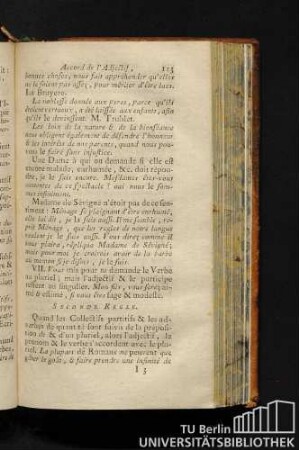 Accord de l'Adjectif, 113
bonnes choses, nous fait appréhender qu'elles
ne le soient pas assez, pour mériter d'être lues.
La Bruyere.
La noblesse donnée aux peres, parce qu'ils
étoient vertueux, a été laissée aux enfans, afin
qu'ils le devinssent. M. Trublet.
Les loix de la nature & de la bienséance
nous obligent également de défendre l'honneur,
& les intérêts de nos parents, quand nous pouvons
le faire sans injustice.
Une Dame à qui on demande si elle est
encore malade, enrhumée, &c. doit répon-
dre, je le suis encore. Mesdames êtes-vous
contentes de ce spectacle ? oui nous le som-
mes infiniment.
Madame de Sévigné n'étoit pas de ce sen-
timent : Ménage se plaignant d'être enrhumé,
elle lui dit, je la suis aussi. Il me semble, re-
prit Ménage, que les regles de notre langue
veulent je le suis aussi. Vous direz comme il
vous plaira, répliqua Madame de Sévigné;
mais pour moi je croirois avoir de la barbe
au menton si je disois, je le suis.
VII. Vous mis pour tu demande le Verbe
au pluriel; mais l'adjectif & le participe
restent au singulier. Mon fils, vous serez
& estimé, si vous êtes sage & modeste.
SECONDE REGLE.
Quand les Collectifs partitifs & les ad-
verbes de quantité sont suivis de la préposi-
tion de & d'un pluriel, alors l'adjectif, le
pronom & le verbe s'accordent avec le plu-
riel. La plupart de Romans ne peuvent que
gâter le goût, & faire prendre une infinité de
I 3
TU Berlin
UNIVERSITÄTSBIBLIOTHEK